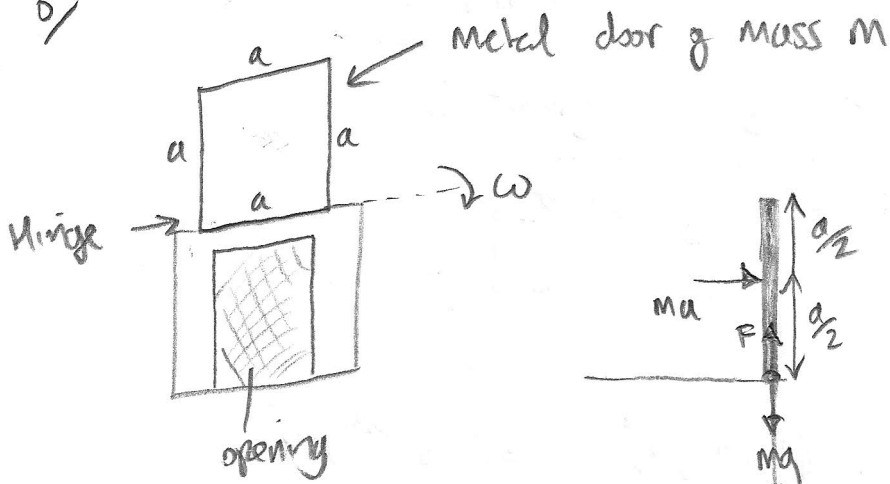 b/
Metal door of mass M
a
a
a
a
ω
Hinge
opening
Mu
F
a/2
a/2
Mg